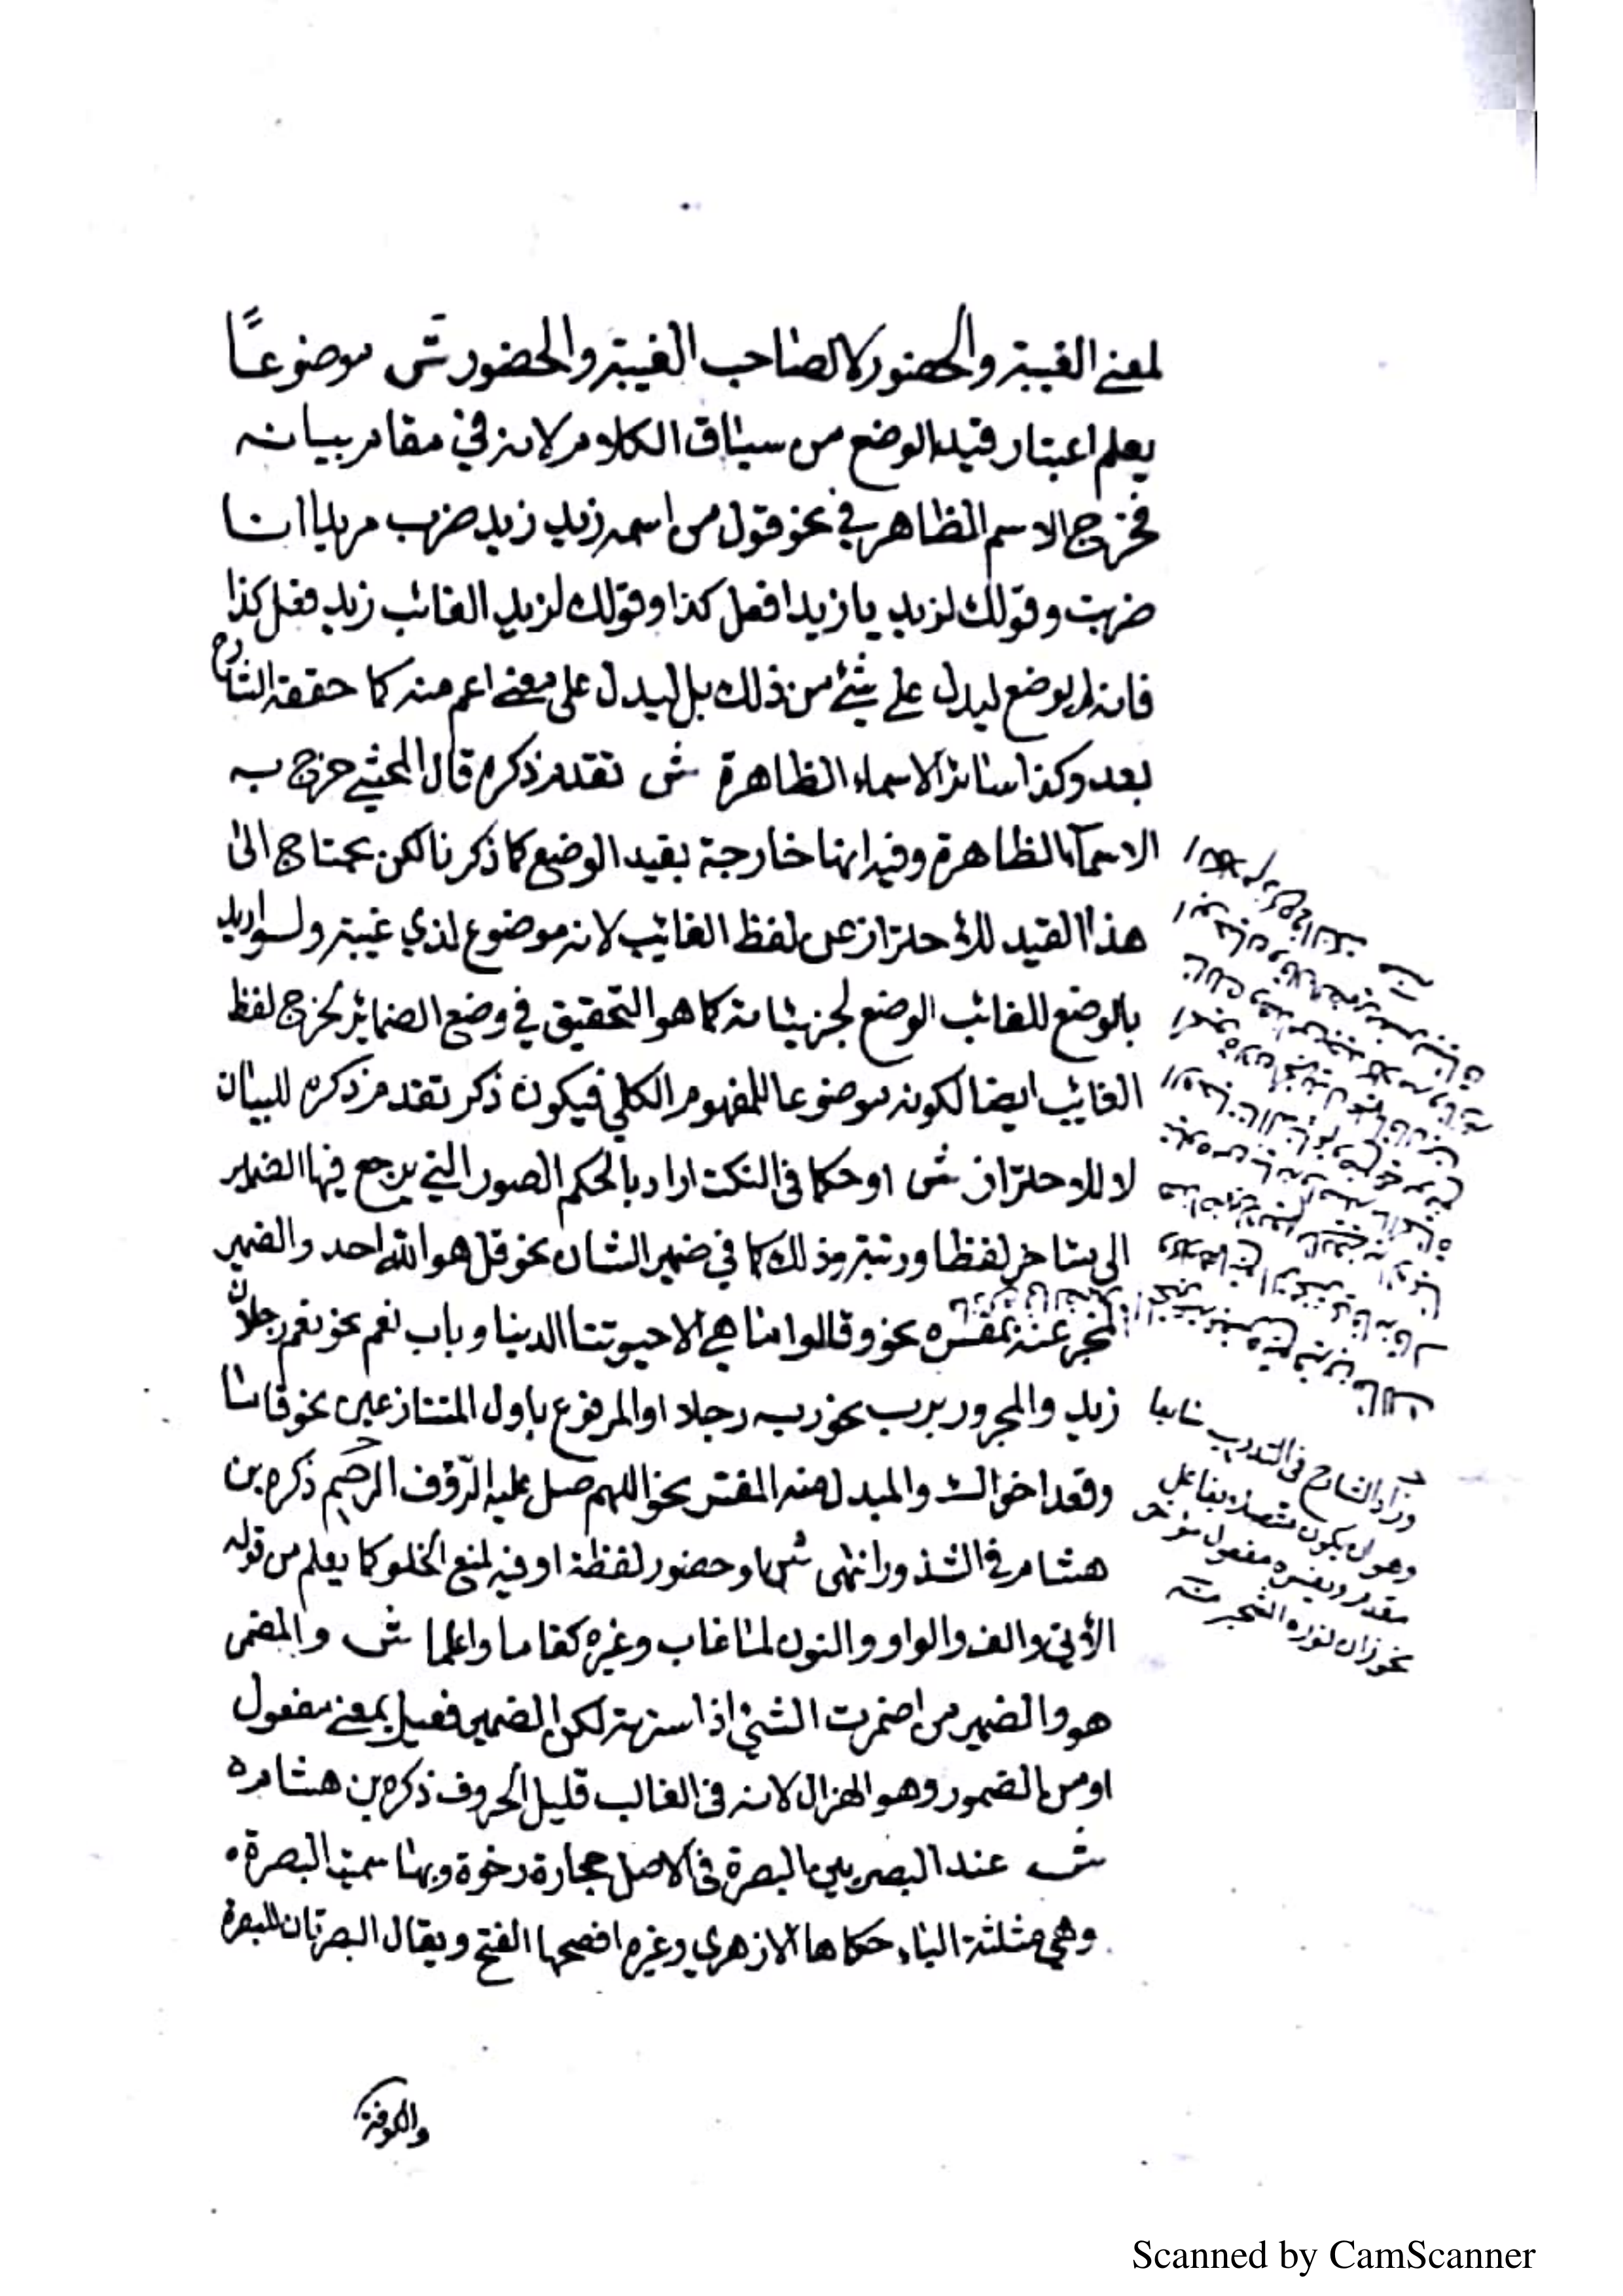 لمعنے الغيبة والحضور لا لصاحب الغيبة والحضور ش موضوعًا
يعلم اعتبار قيد الوضع من سياق الكلام لانه في مقام بيانه
فخرج الاسم الظاهر في نحو قول من اسمه زيد زيد ضرب مريدا انا
ضربت وقولك لزيد يا زيد افعل كذا وقولك لزيد الغائب زيد فعل كذا
فانه لم يوضع ليدل علے شئ من ذلك بل ليدل على معنے اعم منه كما حققه الشارح
بعد وكذا سائر الاسماء الظاهرة ش تقدم ذكره قال المحشے خرج به
الاسمآء الظاهرة وفيه انها خارجة بقيد الوضع كما ذكرنا لكن يحتاج الى
هذا القيد للاحتراز عن لفظ الغائب لانه موضوع لذي غيبة ولو اريد
بالوضع للغائب الوضع لجزئياته كما هو التحقيق في وضع الضمائر لخرج لفظ
الغائب ايضا لكونه موضوعا للمفهوم الكلي فيكون ذكر تقدم ذكره للبيان
لا للاحتراز ش او حكما فى النكت اراد بالحكم الصور التي يرجع فيها الضمير
الى متاخر لفظا ورتبة وذلك كما في ضمير الشان نحو قل هو الله احد والضمير
المخبر عنه بمفسره نحو وقالوا ما هي الا حيوتنا الدنيا وباب نعم نحو نعم رجلا
زيد والمجرور برب نحو ربه رجلا والمرفوع باول المتنازعين نحو قاما
وقعد اخواك والمبدل منه المفسر نحو اللهم صل عليه الرّؤف الرحيم ذكره بن
هشام فى الشذور انتهى ش او حضور لفظة او فيه لمنع الخلو كما يعلم من قوله
الأتي والف والواو والنون لما غاب وغيره كقاما واعلما ش والمضمر
هو والضمير من اضمرت الشئ اذا سترته لكن الضمير فعيل بمعنے مفعول
او من الضمور وهو الهزال لانه فى الغالب قليل الحروف ذكره بن هشام ه
ش عند البصريين البصرة فى الاصل حجارة رخوة وبها سميت البصرة
وهي مثلثة الباء حكاها الازهري وغيره افصحها الفتح ويقال البصرتان للبصرة
والكوفة
زاد الشارح فى التدريب سابعا
وهو ان يكون متصلا بفاعل
مقدم ويفسره مفعول مؤخر
نحو زان نوره الشجر
Scanned by CamScanner